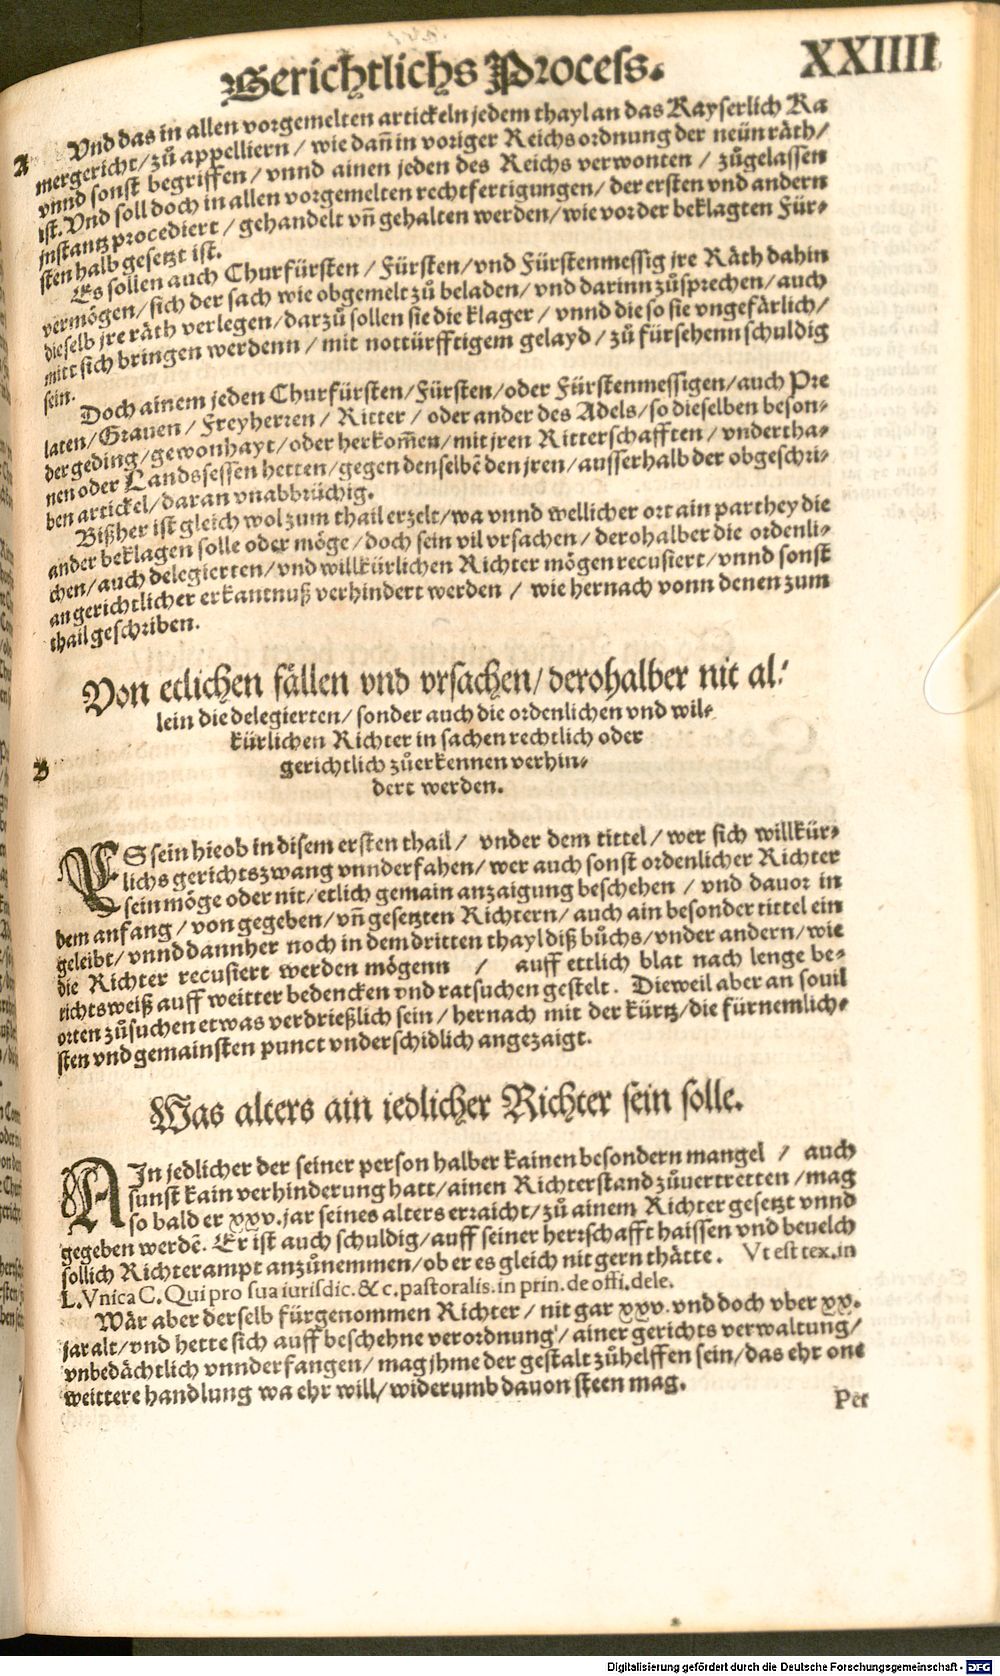 Gerichtlichs Process. XXIIII
A Vnd das in allen vorgemelten artickeln jedem thayl an das Kayserlich Ka
mergericht/ zů appelliern / wie dañ in voriger Reichsordnung der neün räth/
vnnd sonst begriffen / vnnd ainen jeden des Reichs verwonten / zůgelassen
ist. Vnd soll doch in allen vorgemelten rechtfertigungen/ der ersten vnd andern
jnstantz procediert / gehandelt vñ gehalten werden/ wie vor der beklagten Für⸗
sten halb gesetzt ist.
Es sollen auch Churfürsten / Fürsten/ vnd Fürstenmessig jre Räth dahin
vermögen/ sich der sach wie obgemelt zů beladen/ vnd darinn zůsprechen/ auch
dieselb jre räth verlegen/ darzů sollen sie die klager / vnnd die so sie vngefärlich/
mitt sich bringen werdenn / mit nottürfftigem gelayd / zů fürsehenn schuldig
sein.
Doch ainem jeden Churfürsten/ Fürsten/ oder Fürstenmessigen/ auch Pre
laten/ Grauen/ Freyherren / Ritter / oder ander des Adels/ so dieselben beson⸗
der geding/ gewonhayt/ oder herkom̃en/ mit jren Ritterschafften / vndertha⸗
nen oder Landsessen hetten/ gegen denselbē den jren/ ausserhalb der obgeschri⸗
ben artickel/ daran vnabbrüchig.
Bißher ist gleich wol zum thail erzelt/ wa vnnd wellicher ort ain parthey die
ander beklagen solle oder möge / doch sein vil vrsachen / derohalber die ordenli⸗
chen/ auch delegierten/ vnd willkürlichen Richter mögen recusiert/ vnnd sonst
an gerichtlicher erkantnuß verhindert werden / wie hernach vonn denen zum
thail geschriben.
Von etlichen fällen vnd vrsachen/ derohalber nit al⸗
lein die delegierten/ sonder auch die ordenlichen vnd wil⸗
kürlichen Richter in sachen rechtlich oder
B gerichtlich zůerkennen verhin⸗
dert werden.
ES sein hieob in disem ersten thail / vnder dem tittel / wer sich willkür⸗
lichs gerichtszwang vnnderfahen/ wer auch sonst ordenlicher Richter
sein möge oder nit/ etlich gemain anzaigung beschehen / vnd dauor in
dem anfang / von gegeben/ vñ gesetzten Richtern/ auch ain besonder tittel ein
geleibt/ vnnd dannher noch in dem dritten thayl diß bůchs/ vnder andern/ wie
die Richter recusiert werden mögenn / auff ettlich blat nach lenge be⸗
richtsweiß auff weitter bedencken vnd ratsuchen gestelt. Dieweil aber an souil
orten zůsuchen etwas verdrießlich sein / hernach mit der kürtz/ die fürnemlich⸗
sten vnd gemainsten punct vnderschidlich angezaigt.
Was alters ain iedlicher Richter sein solle.
AIn jedlicher der seiner person halber kainen besondern mangel / auch
sunst kain verhinderung hatt/ ainen Richterstand zůuertretten / mag
so bald er xxv. jar seines alters erraicht/ zů ainem Richter gesetzt vnnd
gegeben werdē. Er ist auch schuldig/ auff seiner herrschafft haissen vnd beuelch
sollich Richterampt anzůnemmen/ ob er es gleich nit gern thätte. Vt est tex. in
L. Vnica C. Qui pro sua iurisdic. & c. pastoralis. in prin. de offi. dele.
Wär aber derselb fürgenommen Richter / nit gar xxv. vnd doch vber xx.
jar alt/ vnd hette sich auff beschehne verordnung / ainer gerichts verwaltung/
vnbedächtlich vnnderfangen/ mag jhme der gestalt zůhelffen sein/ das ehr one
weittere handlung wa ehr will/ widerumb dauon steen mag.
Per
Digitalisierung gefördert durch die Deutsche Forschungsgemeinschaft - DFG